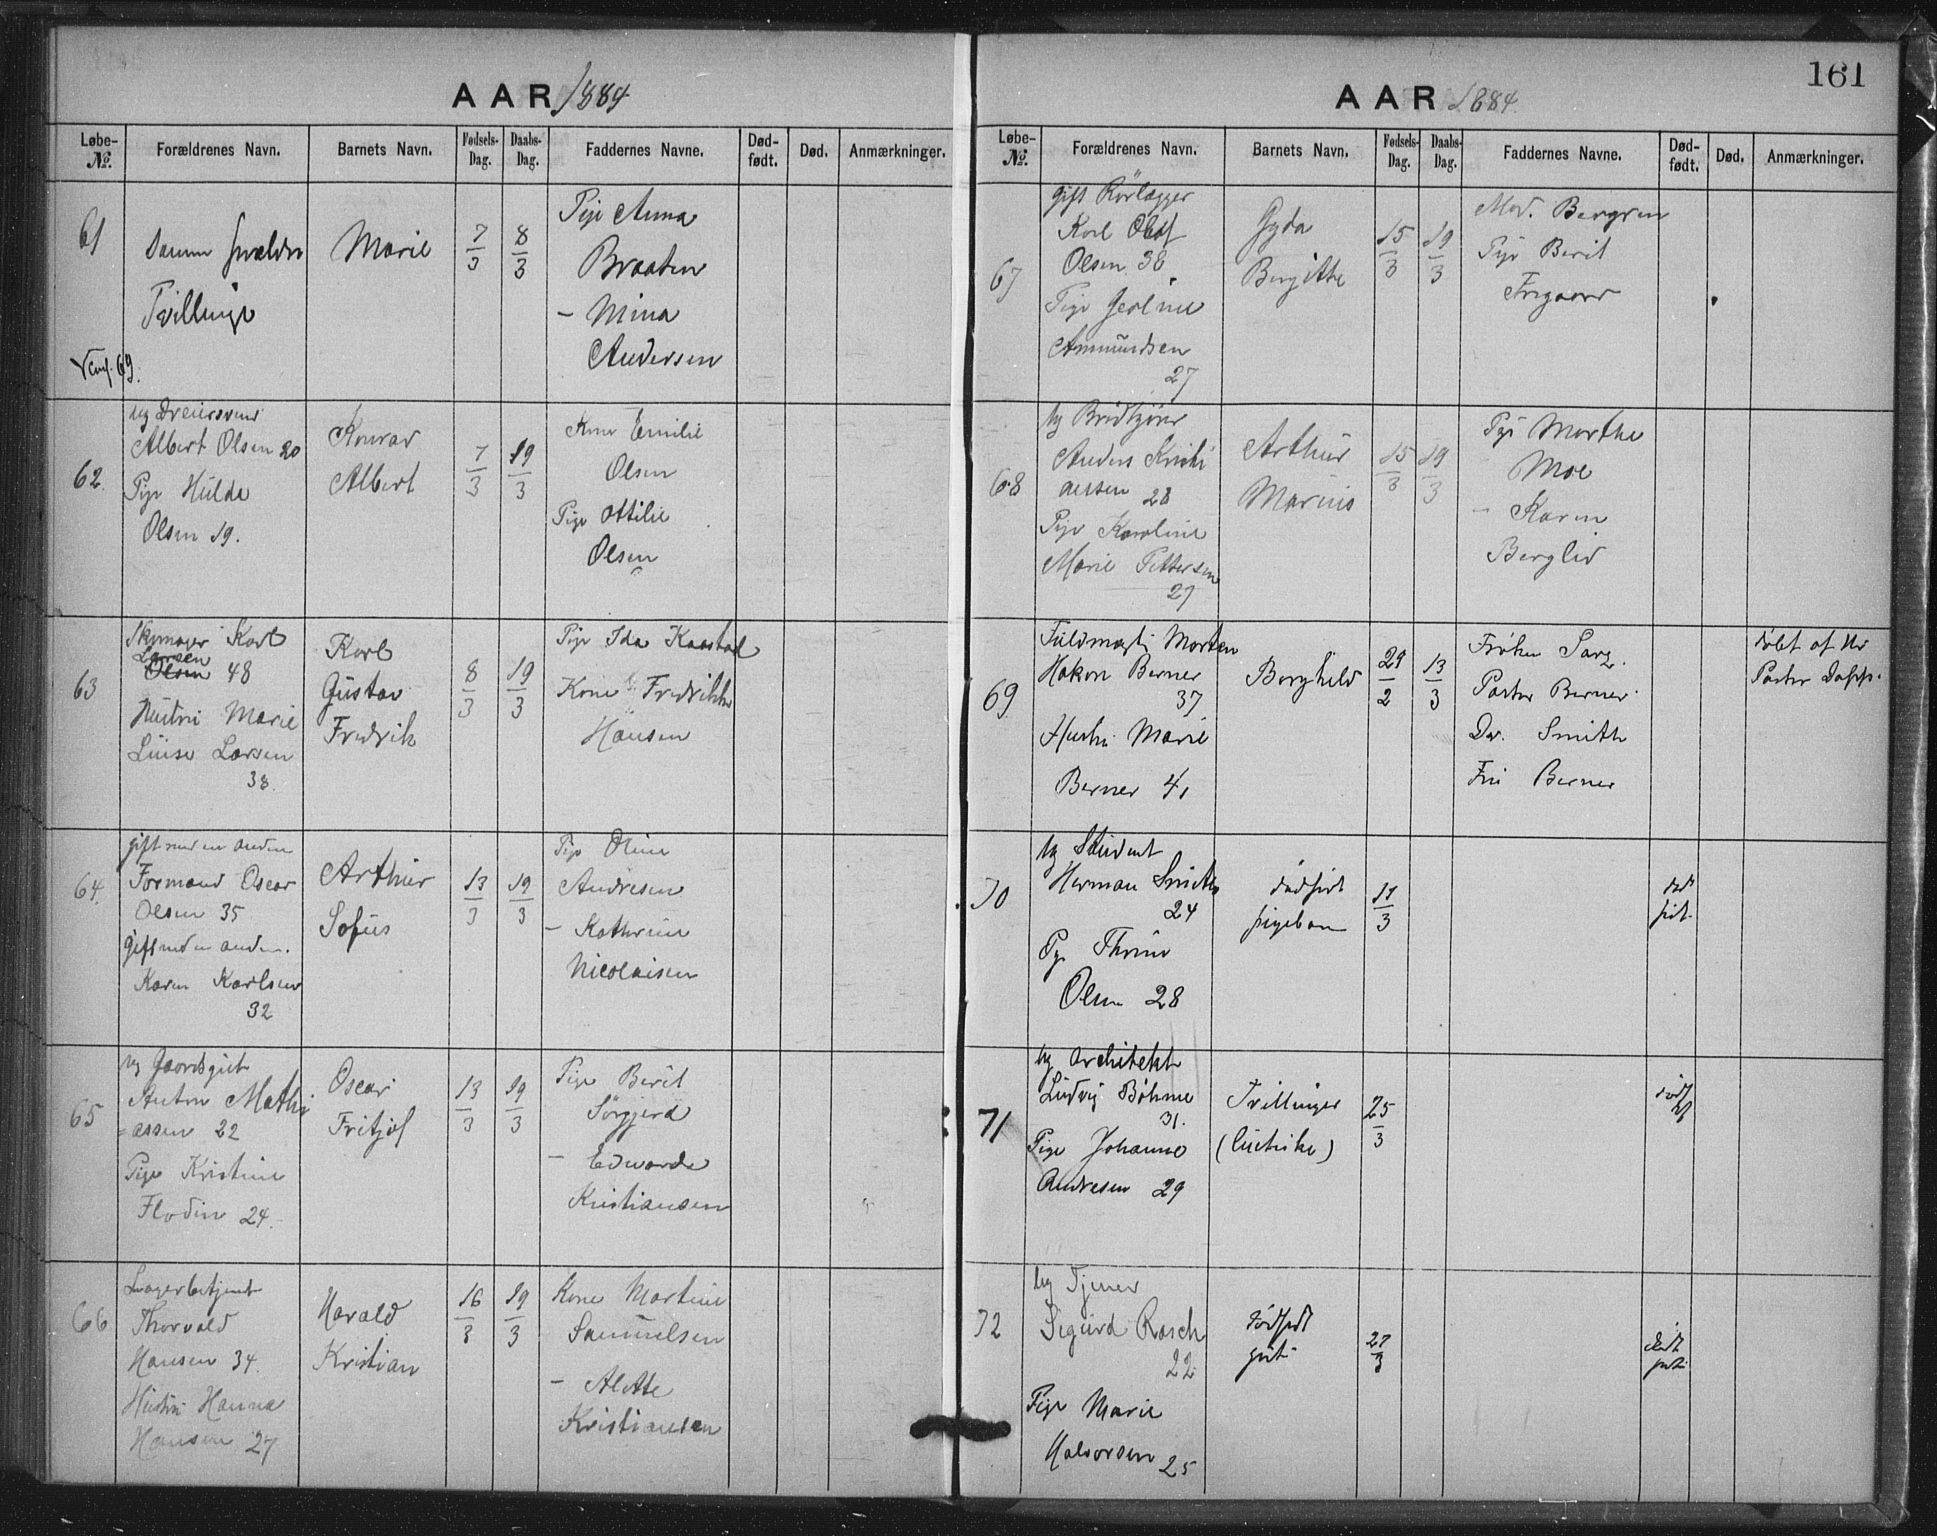 AAR 1884
Løbe-No.
Forældrenes Navn.
Barnets Navn.
Fødsels-Dag.
Daabs-Dag.
Faddernes Navne.
Død-født.
Død.
Anmærkninger.
61
Samme
Tvillinge
Marie
7/3
8/3
Pige Anna
Braaten
– Mina
Andersen
69.
62
ug Dreiersvend
Albert Olsen 20
Pige Hulda
Olsen 19.
Konrad
Albert
7/3
19/3
Kone Emilie
Olsen
Pige Ottilie
Olsen
63
Skomager Karl
Larsen
Olsen 48
Hustru Marie
Luise Larsen
38
Karl
Gustav
Fredrik
8/3
19/3
Pige Ida Kaastad
Kone Fredrikke
Hansen
64
gift med en anden
Formand Oscar
Olsen 35
gift med en anden.
Karen Karlsen
32
Arthur
Sofus
13/3
19/3
Pige Oline
Andresen
– Kathrine
Nicolaisen
65
ug Gaardsgut
Anton Mathi
=assen 22
Pige Kristine
Flodin 24.
Oscar
Fritjof
13/3
19/3
Pige Berit
Sørgjerd
– Edvarda
Kristiansen
66
Lagerbetjent
Thorvald
Hansen 34.
Hustru Hanna
Hansen 27
Harald
Kristian
16/3
19/3
Kone Martine
Samuelsen
– Alette
Kristiansen
161
AAR 1884
Løbe-No.
Forældrenes Navn.
Barnets Navn.
Fødsels-Dag.
Daabs-Dag.
Faddernes Navne.
Død-født.
Død.
Anmærkninger.
67
gift Rörlægger
Karl Olaf
Olsen 38
Pige
Amundsen
27
Gyda
Bergitte
15/3
19/3
Mad. Berggren
Pige Berit
68
ug
Anders Kristi
ansen 28
Pige Karoline
Marie Pettersen
27
Arthur
Marius
15/3
19/3
Pige Marthe
Moe
– Karen
Berglid
69
Fuldmægti Morten
Hakon Berner
37
Hustru Marie
Berner 41
Borghild
29/2
13/3
Frøken
Pastor Berner
Dr. Smith
Fru Berner
døbt af Hr
Pastor
70
ug Student
Herman Smith
24
Pige
Olsen 28
dødfødt
pigebarn
11/3
død
født
71
ug Architekt
Ludvig Böhme
31.
Pige Johanne
Andresen 29
Tvillinger
25/3
72
ug Tjener
Sigurd Rasch
22
Pige Marie
Halvorsen 25
dødfødt
gut
27/3